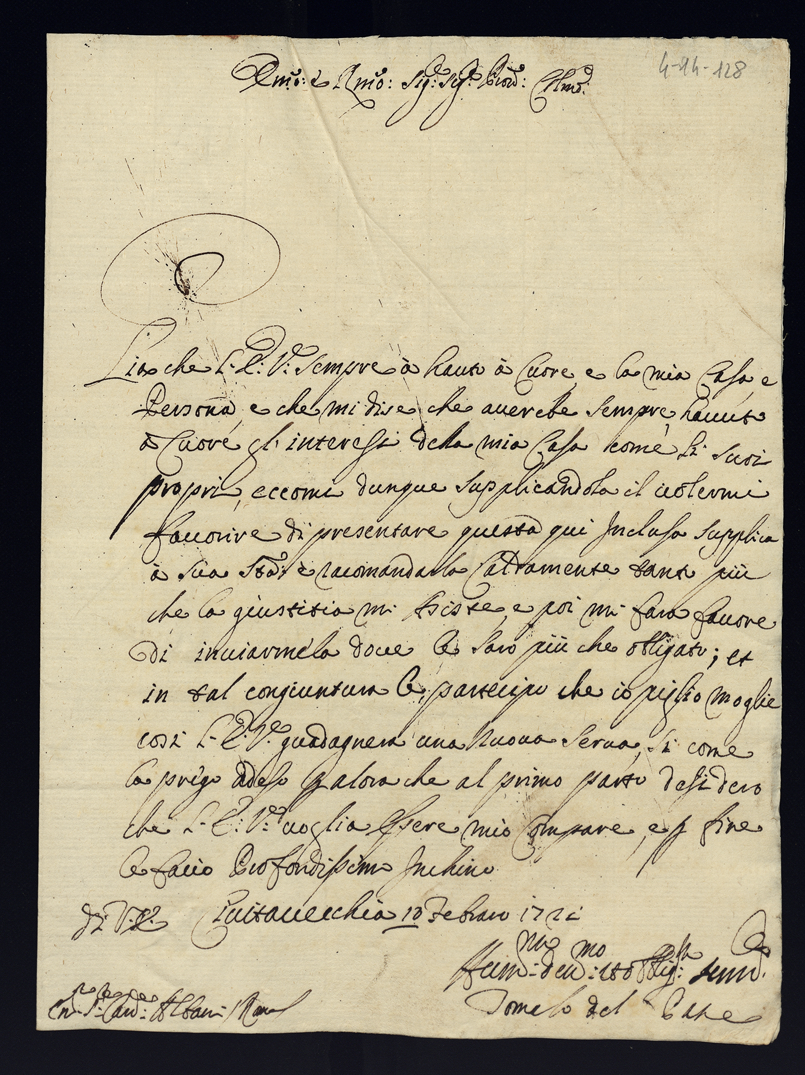 4-14-128
Emo: e Rmo: Sig: Sig: Prod: Clmo
che L. E: V: sempre à hauto à Cuore e la mia Casa e
Persona, e che mi dise che auerebe sempre hauuto
à Cuore gl'interessi della mia Casa come li suoi
propri, eccomi dunque supplicandola il uolermi
fauorire di presentare questa qui Inclusa supplica
à sua Stà: e racomandarla Caldamente tanto più
che la giustitia mi asiste, e poi mi farà fauore
di inuiarmela doue le sarò più che obligato; et
in tal congiuntura le partecipo che io piglio moglie
così L. E: V: guadagnera una nuoua serua, si come
la prego adeso p alora che al primo parto desidero
che L. E: V: uoglia essere mio Compare, e p fine
le facio Profondissimo Inchino
di V. E: Ciuitauecchia 10 Febraro 172
Humo: deuo: Oblig: seruo
Card: Albani Roma del